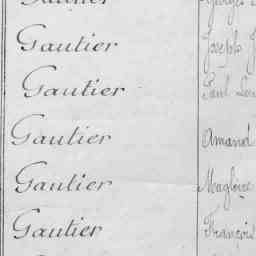 Gautier Georges
Gautier Joseph
Gautier Paul
Gautier Amand
Gautier Magloire
Gautier François